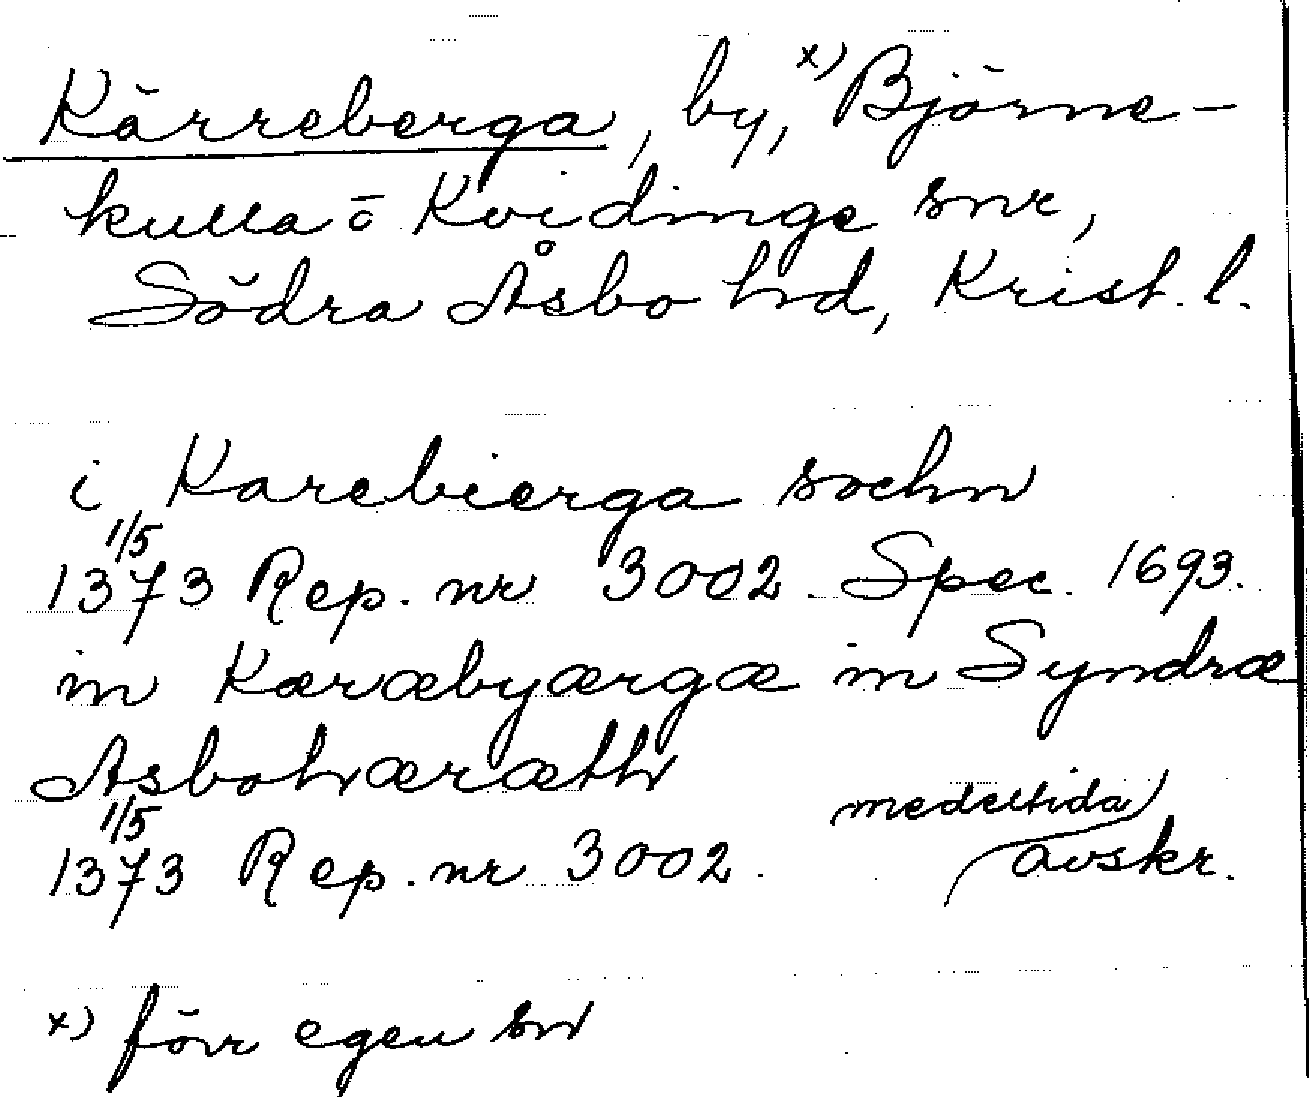 Kärreberga, by, x) Björne-
kulla o Kvidinge snr,
Södra Åsbo hd, Krist. l.
i Karebierga sochn
1/5
1373 Rep. nr 3002. Spec. 1693.
in Kæræbyærgæ in Syndræ
Asbohæræth
1/5
1373 Rep. nr 3002. medeltida avskr.
x) förr egen sn